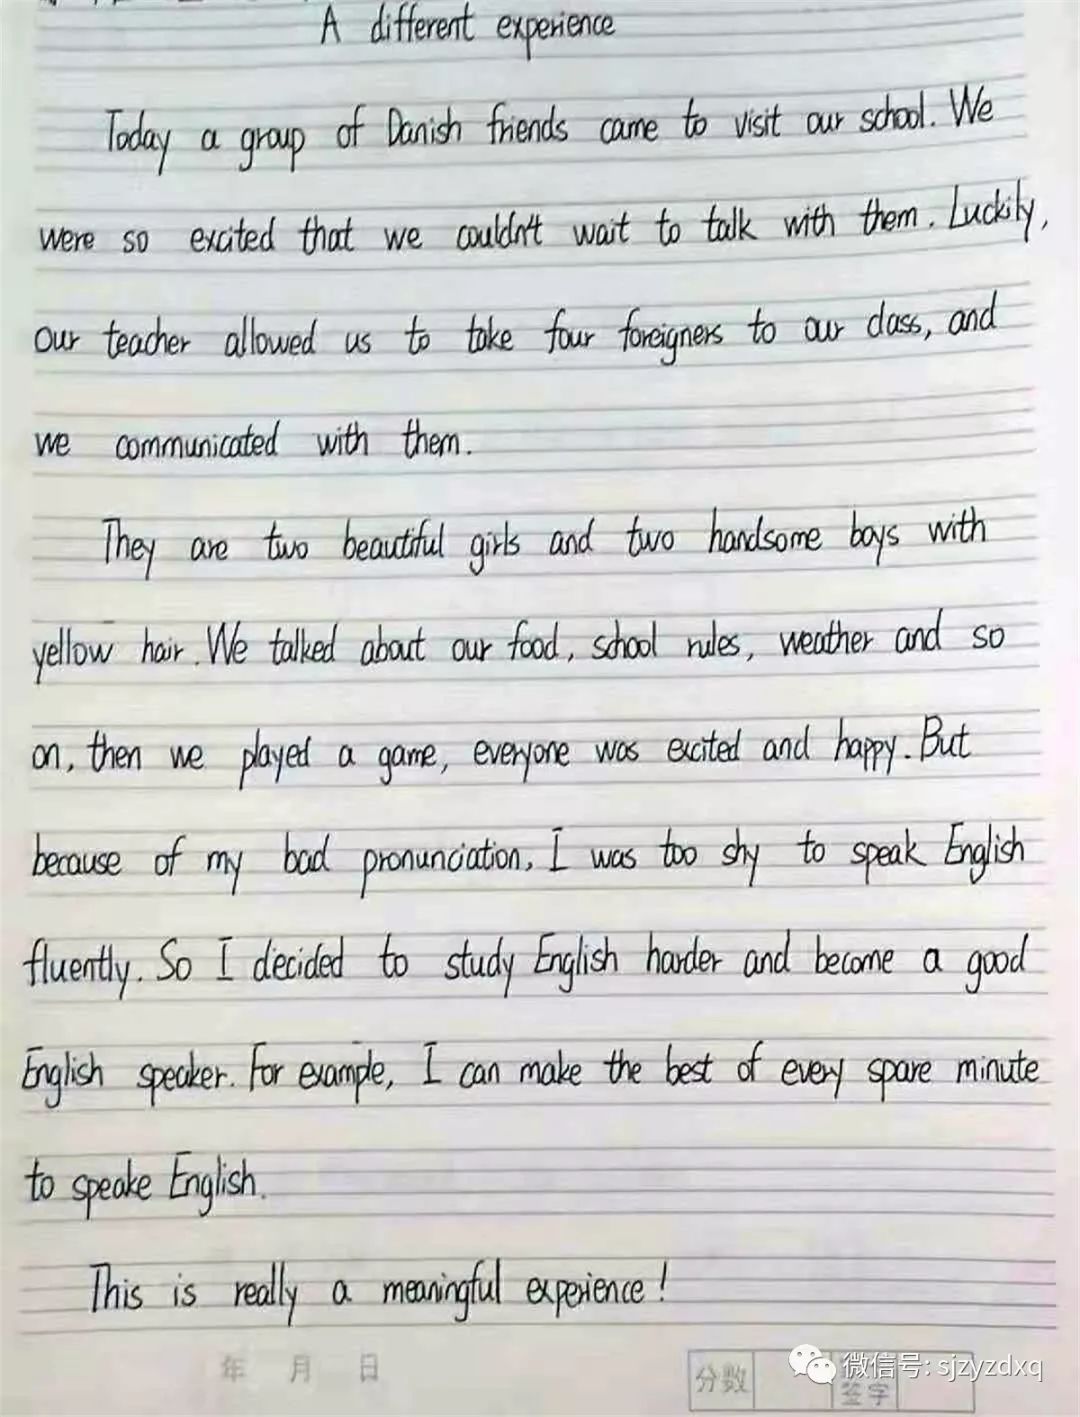 A different experience
Today a group of Danish friends came to visit our school. We
were so excited that we couldn't wait to talk with them. Luckily,
our teacher allowed us to take four foreigners to our class, and
we communicated with them.
They are two beautiful girls and two handsome boys with
yellow hair. We talked about our food, school rules, weather and so
on, then we played a game, everyone was excited and happy. But
because of my bad pronunciation, I was too shy to speak English
fluently. So I decided to study English harder and become a good
English speaker. For example, I can make the best of every spare minute
to speake English.
This is really a meaningful experience!
年 月 日
分数
签字
微信号: sjzyzdxq